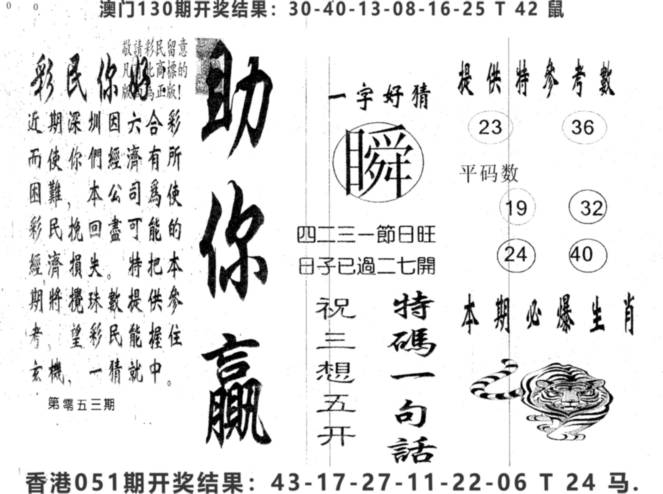 澳门130期开奖结果：30-40-13-08-16-25 T 42 鼠
敬請彩民留意
彩民你好
近期深圳因六合彩
而使你們經濟有所
困難，本公司為使
彩民挽回盡可能的
經濟損失。特把本
期將攪珠數提供參
考，望彩民能握住
玄機，一猜就中。
第零五三期
助你贏
一字好猜
瞬
四二三一節日旺
日子已過二七開
特碼一句話
祝三想五开
提供特參考數
23 36
平码数
19 32
24 40
本期必爆生肖
香港051期开奖结果：43-17-27-11-22-06 T 24 马.